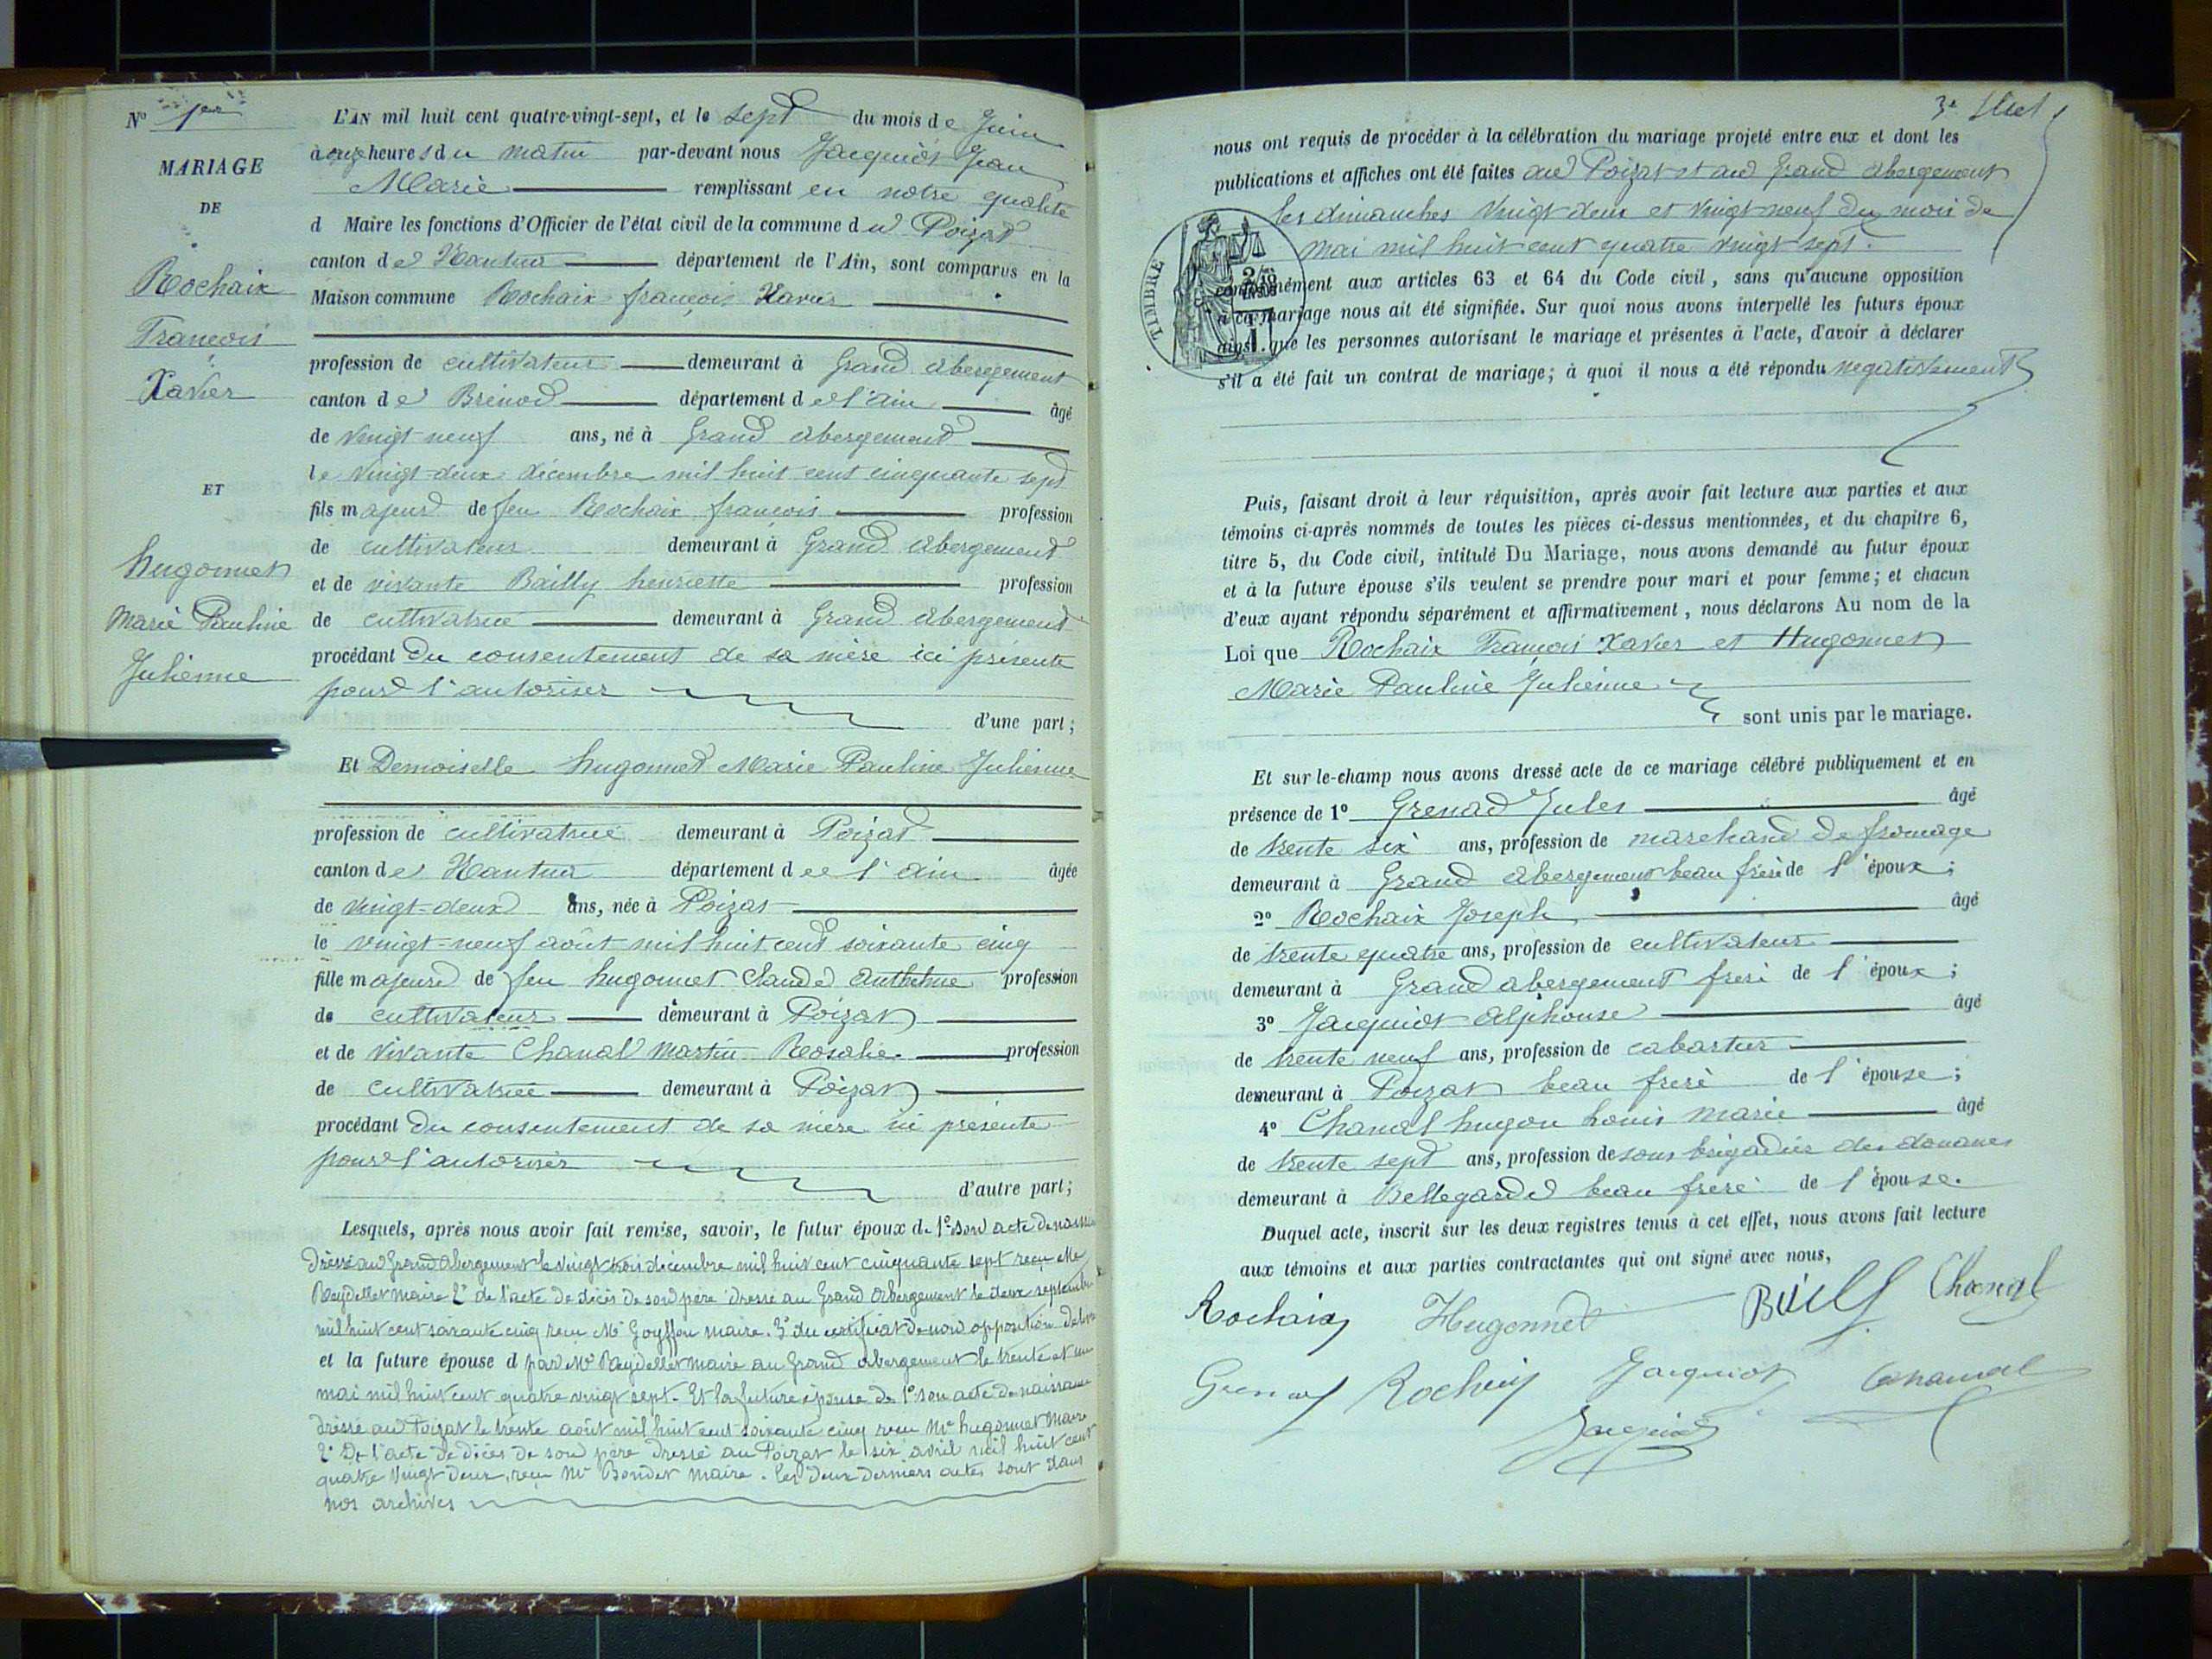 N° 1er
MARIAGE
DE
Rochaix
François
Xavier
ET
hugonnet
Marie Pauline
Julienne
L'AN mil huit cent quatre-vingt-sept, et le sept du mois de Juin
à onze heures du matin par-devant nous Jacquiot Jean
Marie remplissant en notre qualité
d Maire les fonctions d'Officier de l'état civil de la commune du Poizat
canton de Nantua département de l'Ain, sont comparus en la
Maison commune Rochaix françois Xavier
profession de cultivateur demeurant à Grand abergement
canton de Brénod département de l'ain âgé
de vingt neuf ans, né à Grand abergement
le vingt-deux décembre mil huit cent cinquante sept
fils majeur de feu Rochaix françois profession
de cultivateur demeurant à Grand abergement
et de vivante Bailly henriette profession
de cultivatrice demeurant à Grand abergement
procédant du consentement de sa mère ici présente
pour l'autoriser
d'une part;
Et Demoiselle hugonnet Marie Pauline Julienne
profession de cultivatrice demeurant à Poizat
canton de Nantua département de l'ain âgée
de vingt-deux ans, née à Poizat
le vingt-neuf août mil huit cent soixante cinq
fille majeure de feu hugonnet Claude Anthelme profession
de cultivateur demeurant à Poizat
et de vivante Chanal Martin Rosalie profession
de cultivatrice demeurant à Poizat
procédant du consentement de sa mère ici présente
pour l'autoriser
d'autre part;
Lesquels, après nous avoir fait remise, savoir, le futur époux de 1° son acte de
dressé au Grand Abergement le vingt trois décembre mil huit cent cinquante sept reçu Me
Reydellet maire 2° de l'acte de décès de son père dressé au Grand Abergement le deux septembre
mil huit cent soixante cinq reçu Mr Goyffon maire. 3° du certificat de non opposition
et la future épouse d par Mr Reydellet maire au Grand abergement le trente et un
mai mil huit cent quatre vingt sept. Et la future épouse de 1° son acte de naissance
dressé au Poizat le trente août mil huit cent soixante cinq reçu Mr hugonnet Maire
2° De l'acte de décès de son père dressé au Poizat le six avril mil huit cent
quatre vingt deux, reçu Mr Bondet maire. Les deux derniers actes sont dans
nos archives
nous ont requis de procéder à la célébration du mariage projeté entre eux et dont les
publications et affiches ont été faites au Poizat et au Grand abergement
les dimanches vingt deux et vingt neuf du mois de
mai mil huit cent quatre vingt sept.
TIMBRE
conformément aux articles 63 et 64 du Code civil, sans qu'aucune opposition
à ce mariage nous ait été signifiée. Sur quoi nous avons interpellé les futurs époux
ainsi que les personnes autorisant le mariage et présentes à l'acte, d'avoir à déclarer
s'il a été fait un contrat de mariage; à quoi il nous a été répondu négativement
Puis, faisant droit à leur réquisition, après avoir fait lecture aux parties et aux
témoins ci-après nommés de toutes les pièces ci-dessus mentionnées, et du chapitre 6,
titre 5, du Code civil, intitulé Du Mariage, nous avons demandé au futur époux
et à la future épouse s'ils veulent se prendre pour mari et pour femme; et chacun
d'eux ayant répondu séparément et affirmativement, nous déclarons Au nom de la
Loi que Rochaix François Xavier et Hugonnet
Marie Pauline Julienne
sont unis par le mariage.
Et sur-le-champ nous avons dressé acte de ce mariage célébré publiquement et en
présence de 1° Grenad Jules âgé
de trente six ans, profession de marchand de fromage
demeurant à Grand abergement beau frère de l'époux;
2° Rochaix Joseph âgé
de trente quatre ans, profession de cultivateur
demeurant à Grand abergement frère de l'époux;
3° Jacquiot Alphonse âgé
de trente neuf ans, profession de cabartier
demeurant à Poizat beau frère de l'épouse;
4° Chanal hugon Louis Marie âgé
de trente sept ans, profession de sous brigadier des douanes
demeurant à Bellegarde beau frère de l'épouse.
Duquel acte, inscrit sur les deux registres tenus à cet effet, nous avons fait lecture
aux témoins et aux parties contractantes qui ont signé avec nous,
Rochaix Hugonnet Chanal
Rochaix Jacquiot Chanal
Jacquiot